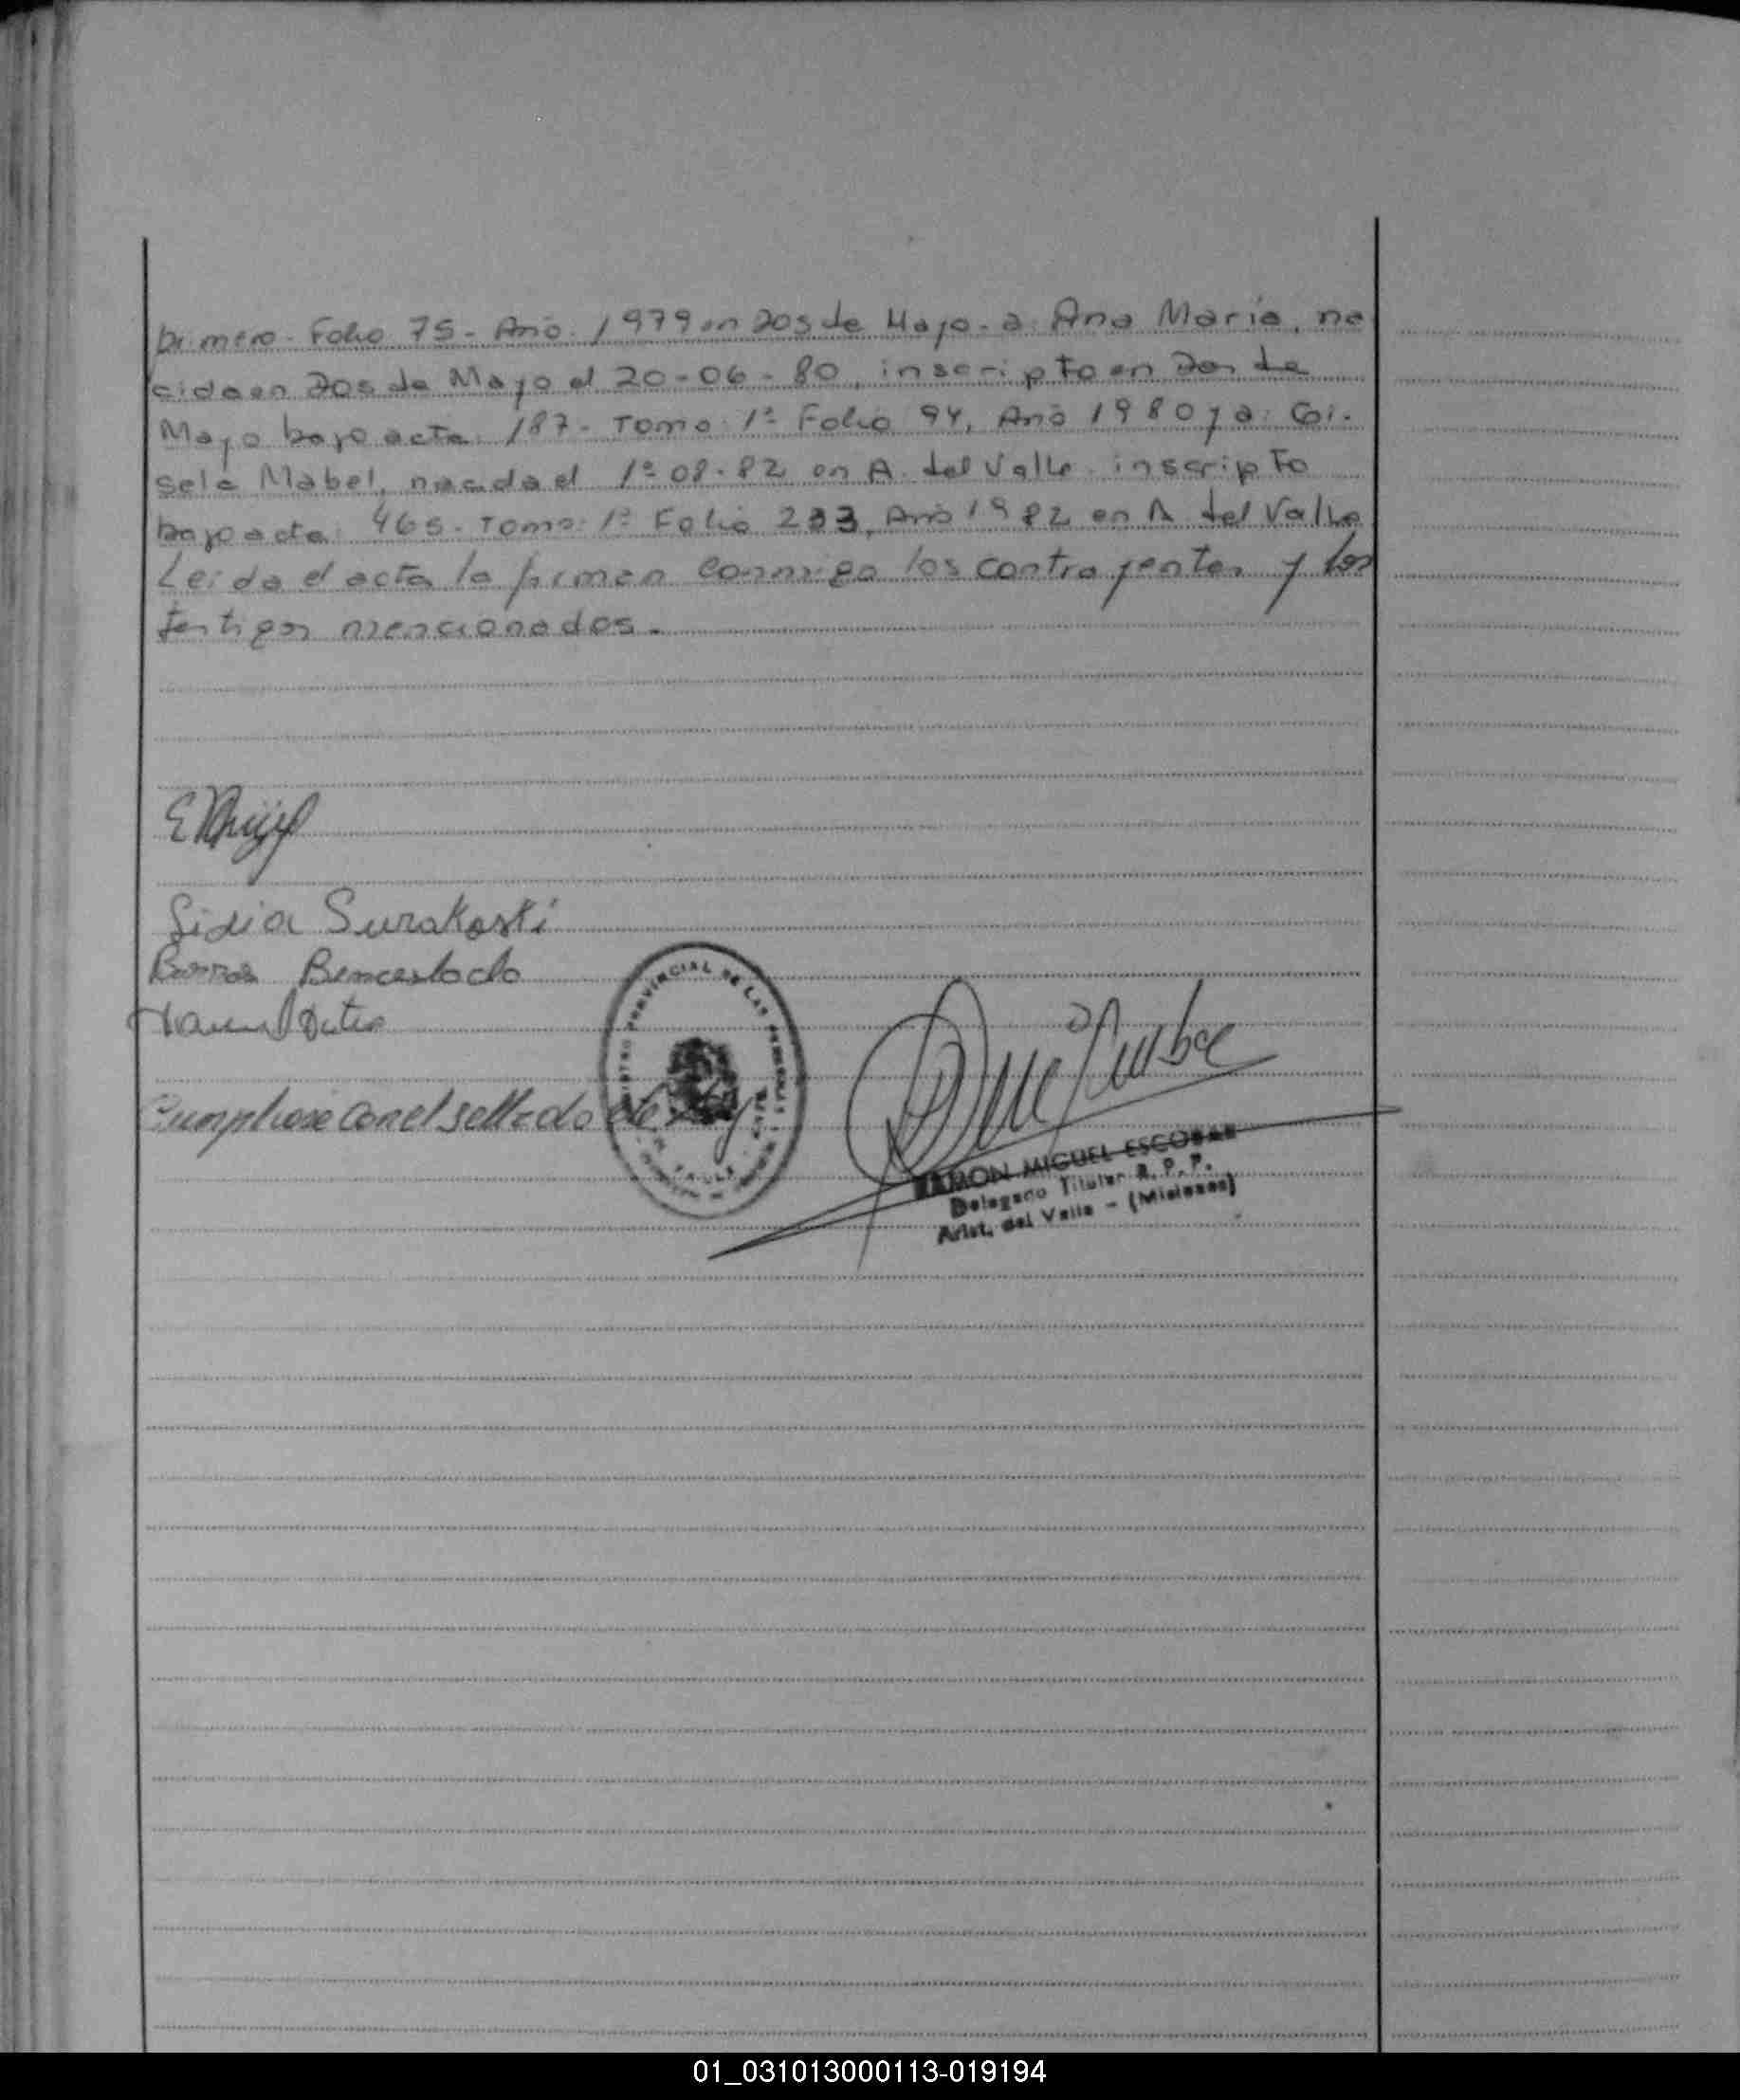 primero - Folio 75 - Año 1979 en Dos de Mayo - a: Ana María, na
cida en Dos de Mayo el 20-06-80, inscripto en Dos de
Mayo bajo acta: 187 - Tomo: 1º Folio 94, Año 1980 y a: Gi-
sela Mabel, nacida el 1º-08-82 en A. del Valle inscripto
bajo acta: 465 - Tomo: 1º Folio 233, Año 1982 en A. del Valle
Leida el acta la firman conmigo los contrayentes y los
testigos mencionados.
Lidia Surakoski
Cumpliose con el sellado de Ley
RAMON MIGUEL ESCOBAR
Delegado Titular R. P. P.
Arist. del Valle - (Misiones)
01_031013000113-019194